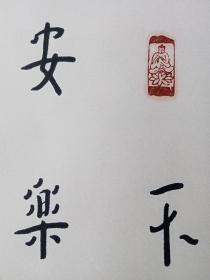 不
安樂